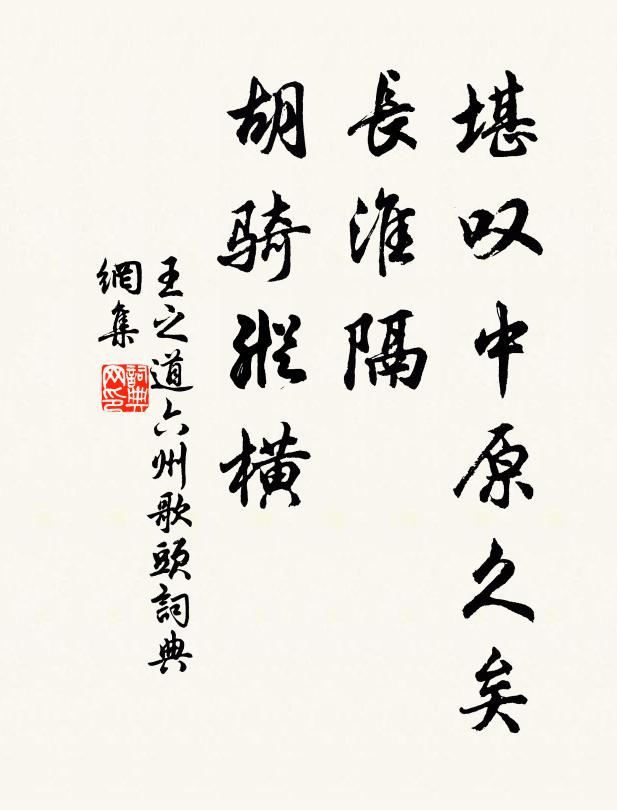 堪叹中原久矣
長淮隔
胡骑縱橫
王之道六州歌頭詞典
網集
詞典網印